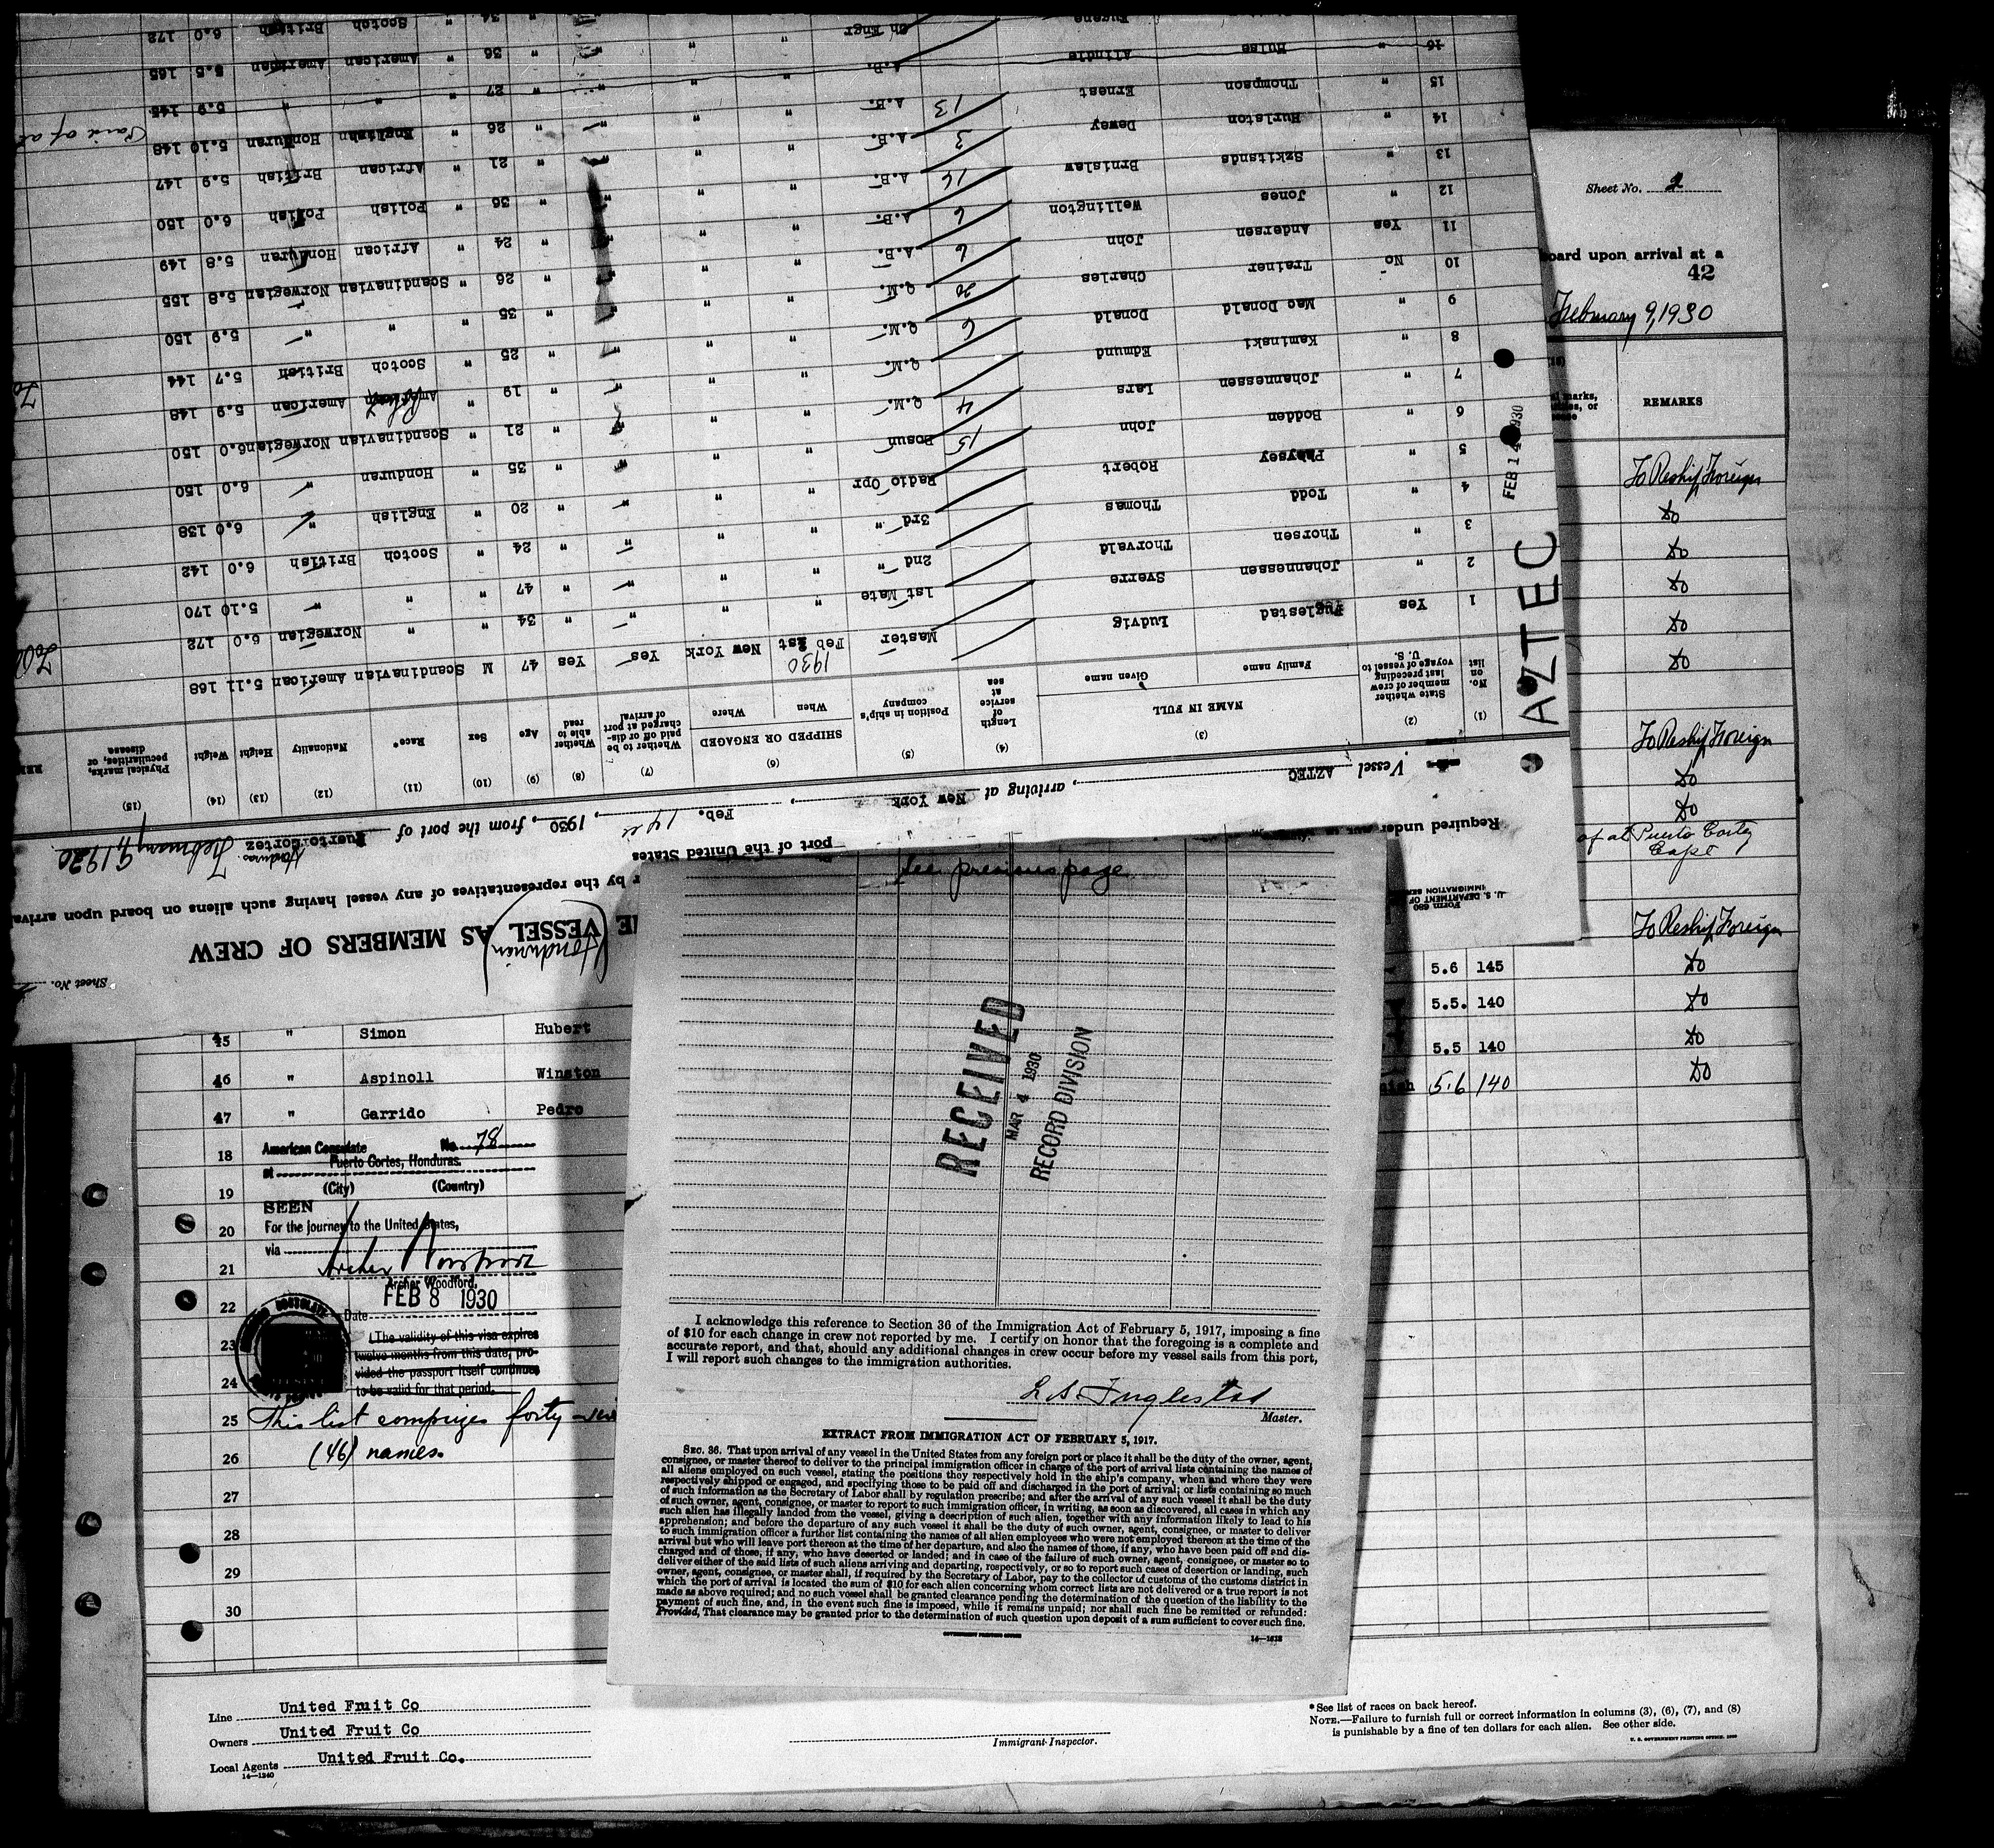 Sheet No.
VESSEL AS MEMBERS OF CREW
(Honduran)
by the representatives of any vessel having such aliens on board upon arrival
Required under
port of the United States
Form 680
U. S. DEPARTMENT OF
IMMIGRATION SERV
Vessel AZTEC, arriving at New York, Feb. 14th, 1930, from the port of Puerto Cortez Honduras. February 9, 1930
(1) No. on list
(2) State whether member of crew last preceding voyage of vessel to U. S.
(3) NAME IN FULL
Family name Given name
(4) Length of service at sea
(5) Position in ship's company
(6) SHIPPED OR ENGAGED
When Where
(7) Whether to be paid off or discharged at port of arrival
(8) Whether able to read
(9) Age
(10) Sex
(11) Race*
(12) Nationality
(13) Height
(14) Weight
(15) Physical marks, peculiarities, or disease
1 Yes Fuglestad Ludvig Master Feb 1st 1930 New York Yes Yes 47 M Scandinavian American 5.11 168
2 " Johannessen Sverre 1st Mate " " " " 34 " " Norwegian 6.0 172
3 " Thorsen Thorvald 2nd " " " " " 47 " " " 5.10 170
4 " Todd Thomas 3rd " " " " " 24 " Scotch British 6.0 142
5 " Phaysey Robert Radio Opr " " " " 20 " English " 6.0 138
6 " Bodden John 15 Bosun " " " " 35 " Honduran " 6.0 150
7 " Johannessen Lars 4 Q.M. " " " " 21 " Scandinavian Norwegian 6.0 150
8 " Kaminski Edmund Q.M. " " " " 19 " American American 5.9 148
9 " Mac Donald Donald 6 Q.M. " " " " 25 " Scotch British 5.7 144
10 No Trainer Charles 20 Q.M. " " " " 35 " " " 5.9 150
11 Yes Andersen John 6 A.B. " " " " 26 " Scandinavian Norwegian 5.8 155
12 " Jones Wellington 6 A.B. " " " " 24 " African Honduran 5.8 149
13 " Szkitands Brnislaw 14 A.B. " " " " 36 " Polish Polish 6.0 150
14 " Hurlston Dewey 3 A.B. " " " " 21 " African British 5.9 147
15 " Thompson Ernest 13 A.B. " " " " 26 " English Honduran 5.10 148
16 " Hulse Alindle A.B. " " " " 27 " " " 5.9 145
Eugene Ch Engr " " " " 36 " American American 5.5 165
34 " Scotch British 6.0 172
Paid of at
AZTEC
FEB 14 1930
Sheet No. 2
board upon arrival at a
42
February 9, 1930
REMARKS
To Reship Foreign
do
do
do
do
do
To Reship Foreign
do
do
of at Puerto Cortez
Capt
To Reship Foreign
5.6 145 do
5.5. 140 do
5.5 140 do
5.6 140 do
45 " Simon Hubert
46 " Aspinoll Winston
47 " Garrido Pedro
18
19
20
21
22
23
24
25
26
27
28
29
30
American Consulate No. 78
at Puerto Cortes, Honduras.
(City) (Country)
SEEN
For the journey to the United States,
via
Archer Woodford
Archer Woodford.
Date FEB 8 1930
(The validity of this visa expires
twelve months from this date, pro-
vided the passport itself continues
to be valid for that period.
This list comprizes forty
(46) names
See previous page
RECEIVED
MAR 4 1930
RECORD DIVISION
I acknowledge this reference to Section 36 of the Immigration Act of February 5, 1917, imposing a fine
of $10 for each change in crew not reported by me. I certify on honor that the foregoing is a complete and
accurate report, and that, should any additional changes in crew occur before my vessel sails from this port,
I will report such changes to the immigration authorities.
L. A. Fuglestad
Master.
EXTRACT FROM IMMIGRATION ACT OF FEBRUARY 5, 1917.
SEC. 36. That upon arrival of any vessel in the United States from any foreign port or place it shall be the duty of the owner, agent,
consignee, or master thereof to deliver to the principal immigration officer in charge of the port of arrival lists containing the names of
all aliens employed on such vessel, stating the positions they respectively hold in the ship's company, when and where they were
respectively shipped or engaged, and specifying those to be paid off and discharged in the port of arrival; or lists containing so much
of such information as the Secretary of Labor shall by regulation prescribe; and after the arrival of any such vessel it shall be the duty
of such owner, agent, consignee, or master to report to such immigration officer, in writing, as soon as discovered, all cases in which any
such alien has illegally landed from the vessel, giving a description of such alien, together with any information likely to lead to his
apprehension; and before the departure of any such vessel it shall be the duty of such owner, agent, consignee, or master to deliver
to such immigration officer a further list containing the names of all alien employees who were not employed thereon at the time of the
arrival but who will leave port thereon at the time of her departure, and also the names of those, if any, who have been paid off and dis-
charged and of those, if any, who have deserted or landed; and in case of the failure of such owner, agent, consignee, or master so to
deliver either of the said lists of such aliens arriving and departing, respectively, or so to report such cases of desertion or landing, such
owner, agent, consignee, or master shall, if required by the Secretary of Labor, pay to the collector of customs of the customs district in
which the port of arrival is located the sum of $10 for each alien concerning whom correct lists are not delivered or a true report is not
made as above required; and no such vessel shall be granted clearance pending the determination of the question of the liability to the
payment of such fine, and, in the event such fine is imposed, while it remains unpaid; nor shall such fine be remitted or refunded:
Provided, That clearance may be granted prior to the determination of such question upon deposit of a sum sufficient to cover such fine.
GOVERNMENT PRINTING OFFICE
14—1618
Line United Fruit Co
Owners United Fruit Co
Local Agents United Fruit Co.
14—1240
Immigrant Inspector.
*See list of races on back hereof.
NOTE.—Failure to furnish full or correct information in columns (3), (6), (7), and (8)
is punishable by a fine of ten dollars for each alien. See other side.
U. S. GOVERNMENT PRINTING OFFICE